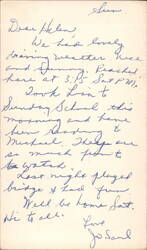 Sun
Dear Helen
We had lovely
training weather. nice
and sunny. Reached
here at 3.P.S Sat P.M.
Took Lisa to
Sunday School this
morning and have
been reading to
Michael. They are
so much fun
to watch.
Last night played
bridge & had fun
Will be home Sat.
Hi to all.
Love